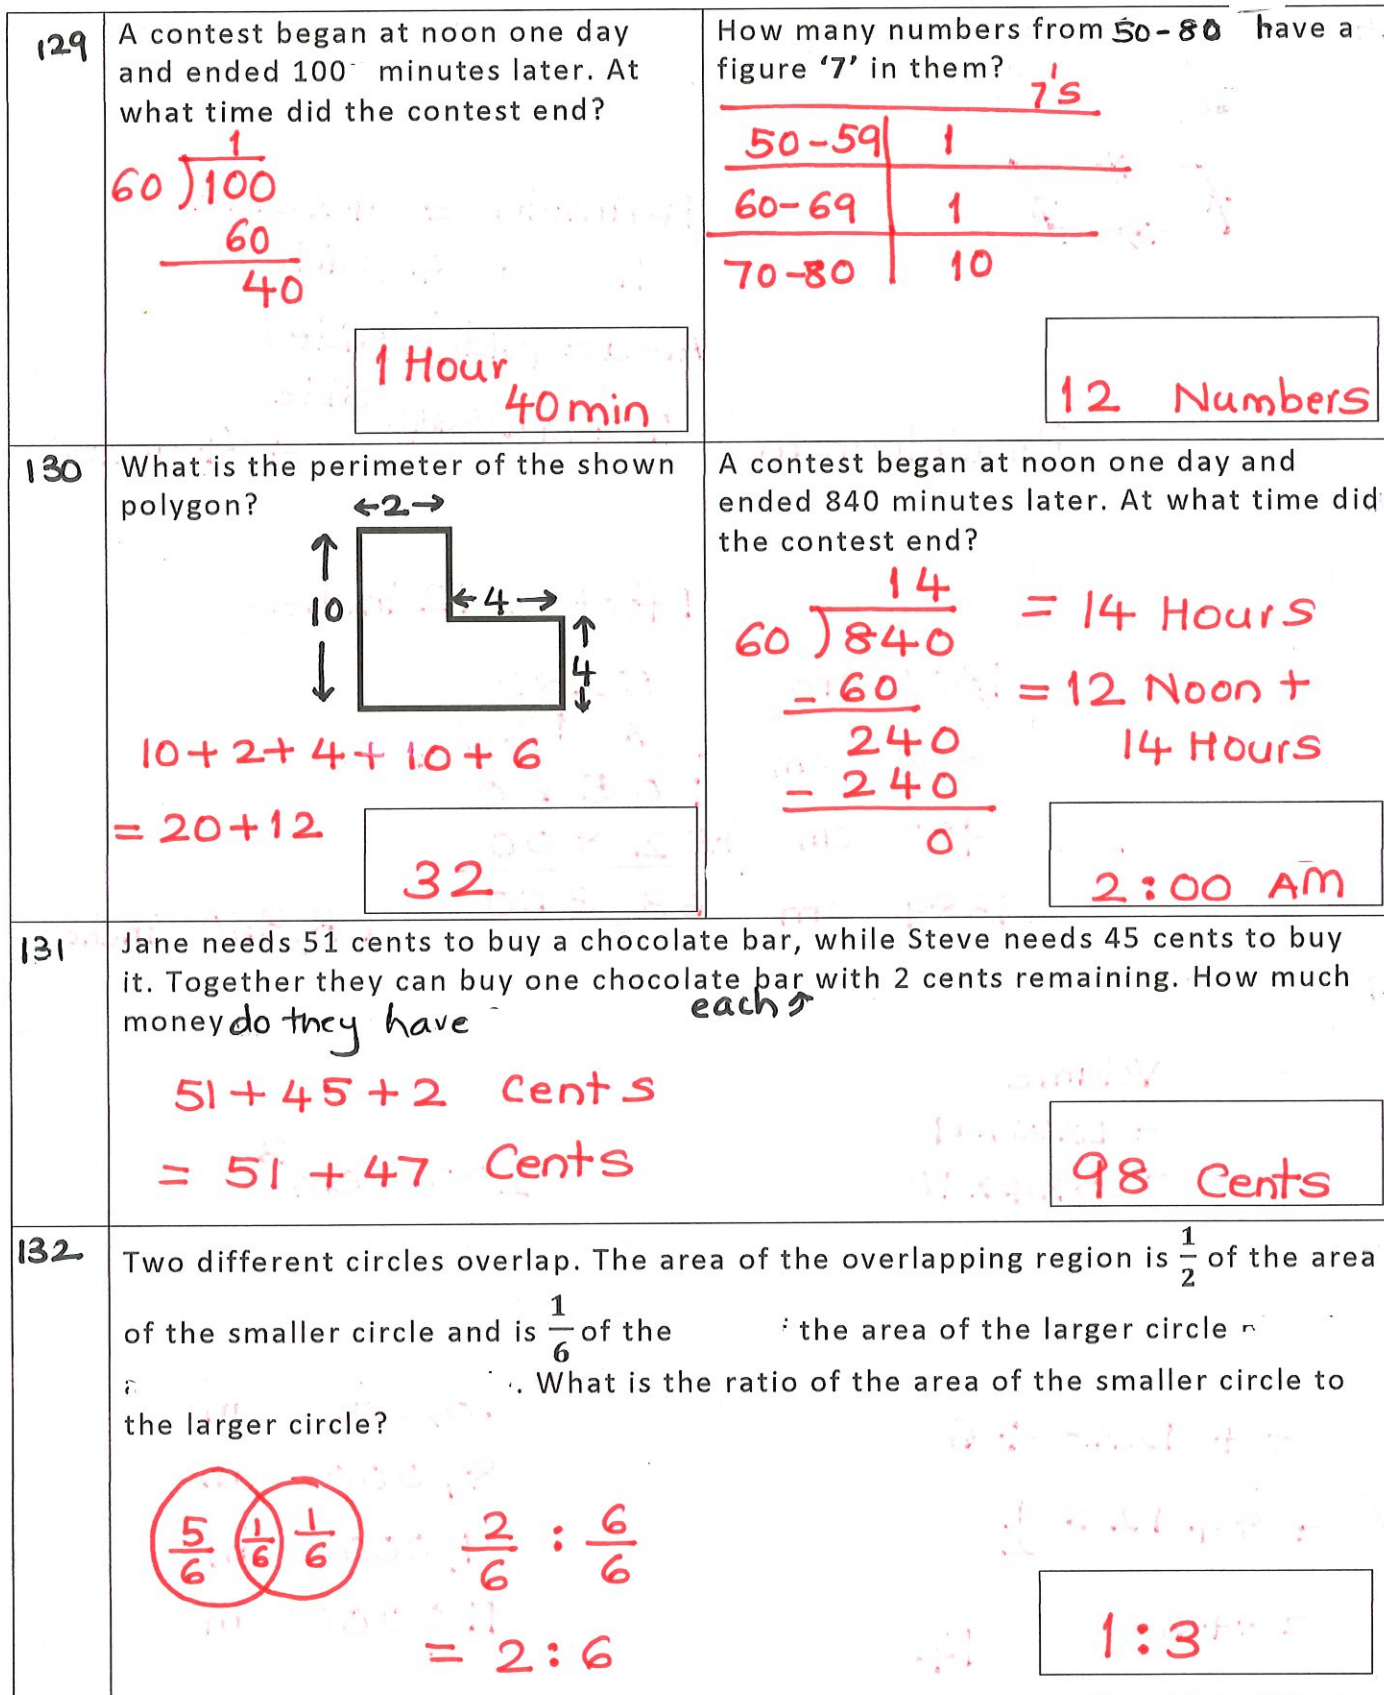 129
A contest began at noon one day
and ended 100 minutes later. At
what time did the contest end?
1
60 ) 100
60
40
1 Hour
40 min
How many numbers from 50-80 have a
figure ‘7’ in them?
7's
50-59 1
60-69 1
70-80 10
12 Numbers
130
What is the perimeter of the shown
polygon?
←2→
↑
10
↓
←4→
↑
4
↓
10+2+4+10+6
= 20+12
32
A contest began at noon one day and
ended 840 minutes later. At what time did
the contest end?
14
60 ) 840
- 60
240
- 240
0
= 14 Hours
= 12 Noon +
14 Hours
2:00 AM
131
Jane needs 51 cents to buy a chocolate bar, while Steve needs 45 cents to buy
it. Together they can buy one chocolate bar with 2 cents remaining. How much
money do they have each ↑
51 + 45 + 2 Cents
= 51 + 47 Cents
98 Cents
132
Two different circles overlap. The area of the overlapping region is 1/2 of the area
of the smaller circle and is 1/6 of the the area of the larger circle
. What is the ratio of the area of the smaller circle to
the larger circle?
5/6 1/6 1/6
2/6 : 6/6
= 2:6
1:3